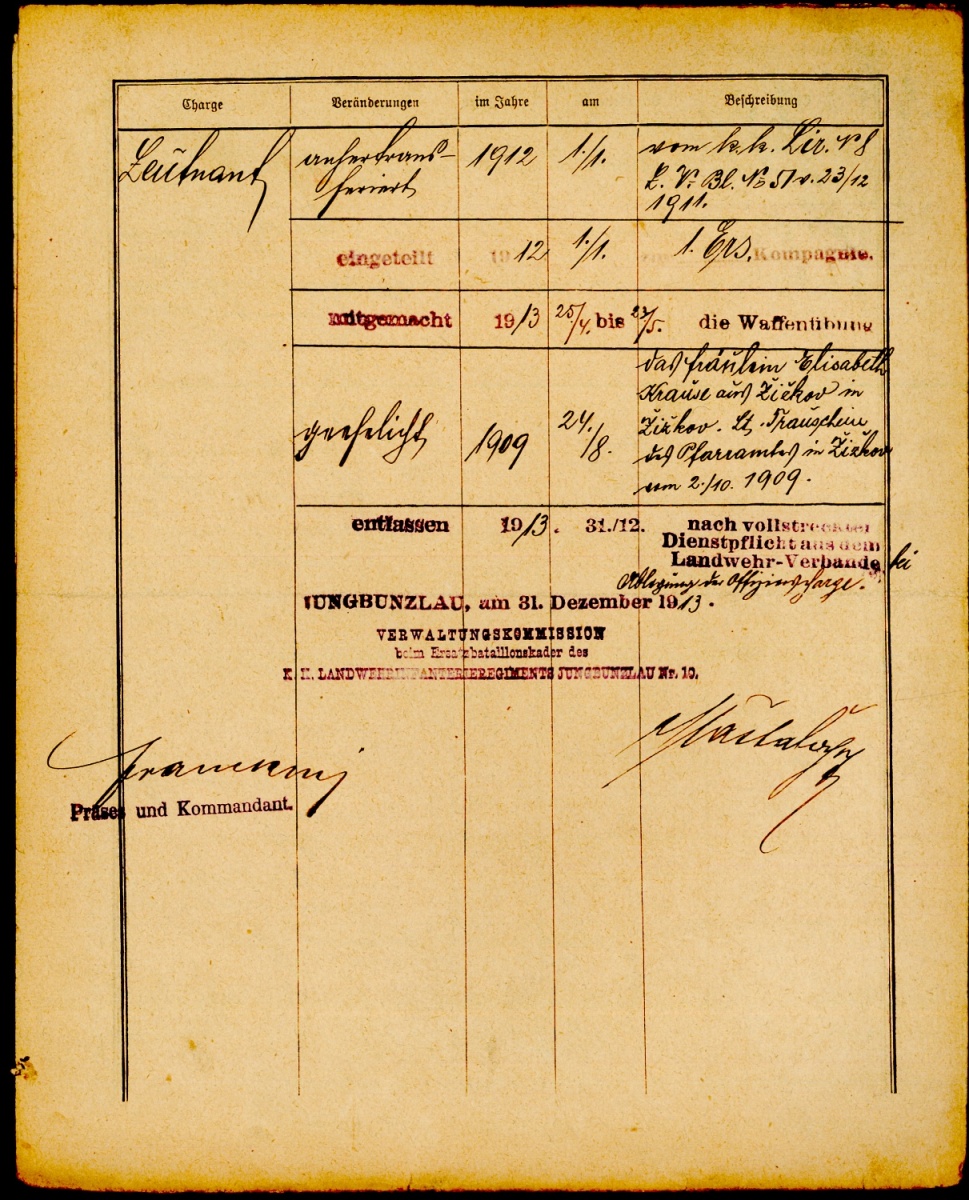 Charge Veränderungen im Jahre am Beschreibung
Leutnant anhertrans- 1912 1./1. vom k. k. Lir. № 8
feriert L. V. Bl. № 51 v. 23/12
1911.
eingeteilt 1912 1./1. zur 1. Ers. Kompagnie.
mitgemacht 1913 25/4. bis 23/5. die Waffenübung
geehelicht 1909 24./8. das Fräulein Elisabeth
Krause aus Žižkov in
Žižkov. Lt. Trauschein
des Pfarramtes in Žižkov
vom 2./10. 1909.
entlassen 1913. 31./12. nach vollstreckter
Dienstpflicht aus dem
Landwehr-Verbande bei
Ablegung der Offizierscharge.
JUNGBUNZLAU, am 31. Dezember 1913.
VERWALTUNGSKOMMISSION
beim Ersatzbataillonskader des
K. K. LANDWEHRINFANTERIEREGIMENTS JUNGBUNZLAU Nr. 10.
Präses und Kommandant.